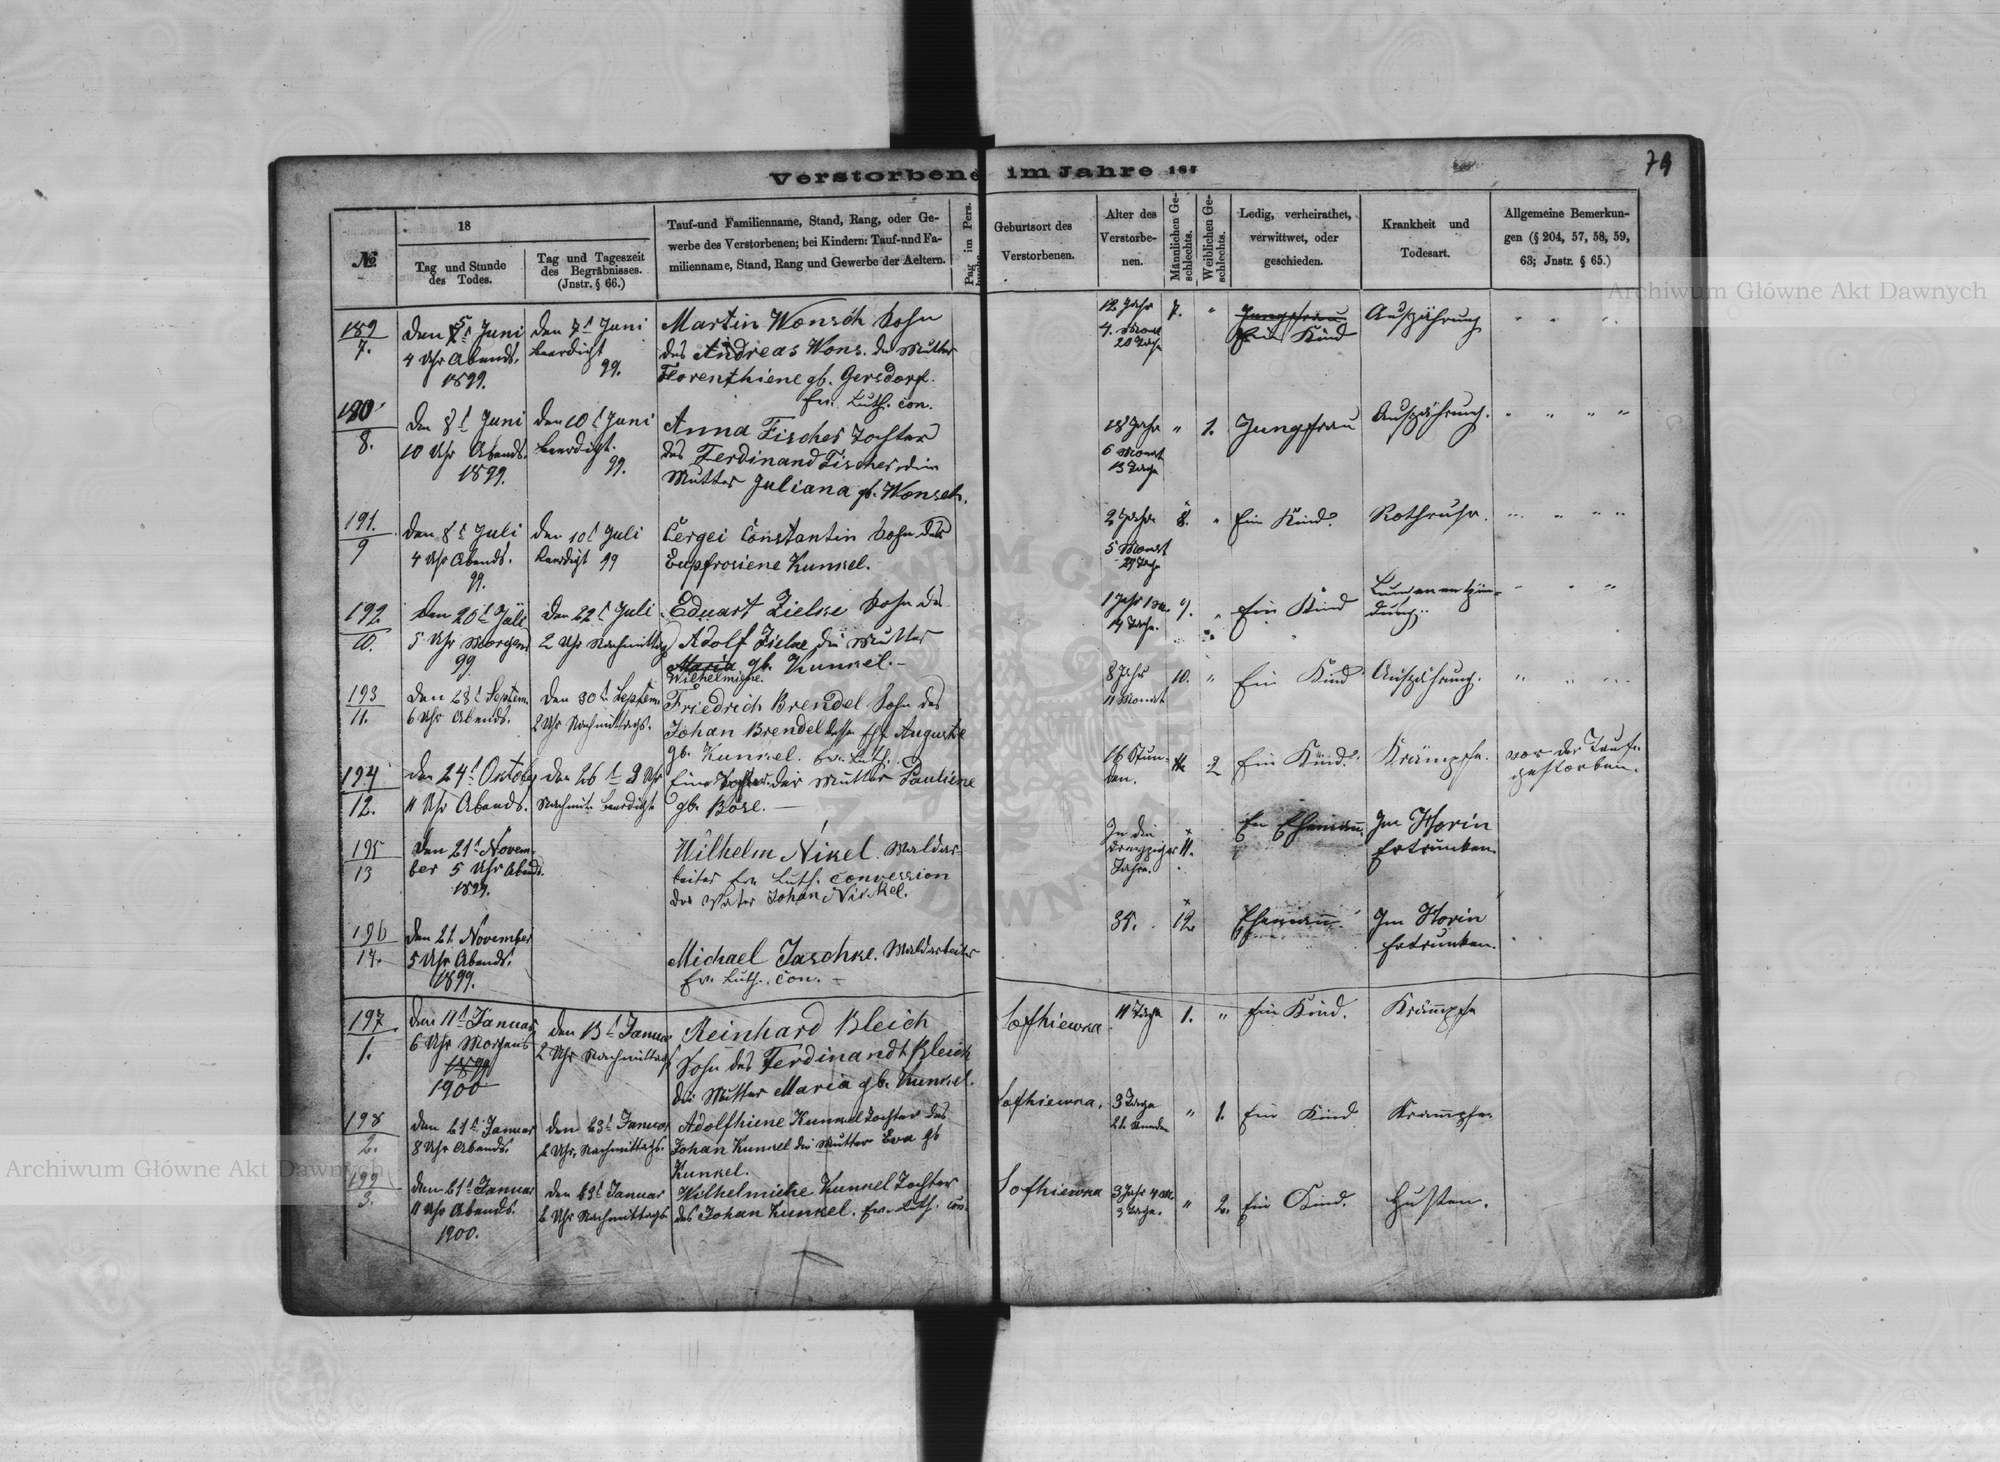 Verstorbene im Jahre 18
79
№
18
Tag und Stunde des Todes.
Tag und Tageszeit des Begräbnisses. (Jnstr. § 66.)
Tauf-und Familienname, Stand, Rang, oder Ge-
werbe des Verstorbenen; bei Kindern: Tauf-und Fa-
milienname, Stand, Rang und Gewerbe der Aeltern.
Pag im Pers.
Geburtsort des
Verstorbenen.
Alter des
Verstorbe-
nen.
Männlichen Ge-
schlechts.
Weiblichen Ge-
schlechts.
Ledig, verheirathet,
verwittwet, oder
geschieden.
Krankheit und
Todesart.
Allgemeine Bemerkun-
gen (§ 204, 57, 58, 59,
63; Jnstr. § 65.)
189
7.
den 5t Juni
4 Uhr Abends.
1899.
den 7t Juni
beerdigt
99.
Martin Wonsch Sohn
des Andreas Wons. die Mutter
Florenthiene gb. Gersdorf.
Ev. Luth. con.
12 Jahr
4. Monat
20 Tage
7.
Jungfrau
Ein Kind
Auszährung
180
8.
den 8t Juni
10 Uhr Abends.
1899.
den 10t Juni
beerdigt.
99.
Anna Fischer Tochter
des Ferdinand Fischer, die
Mutter Juliana gb. Wonsch.
18 Jahr
6 Monat
13 Tage
1.
Jungfrau
Auszährung.
191.
9
den 8t Juli
4 Uhr Abends.
99.
den 10t Juli
beerdigt 99
Cergei Constantin Sohn der
Eupfrosiene Kunkel.
2 Jahr
5 Monat
29 Tage
8.
Ein Kind.
Rothruhr.
192
10.
den 20t Juli
5 Uhr Morgens
99
den 22t Juli
2 Uhr Nachmittag
Eduart Zielke Sohn des
Adolf Zielke die Mutter
Maria gb. Kunkel.
Wilhelmine.
1 Jahr 1 M.
19 Tage.
9.
Ein Kind
Lungenentzün-
dung.
193
11.
den 28t Septem.
6 Uhr Abends.
den 30t Septem.
2 Uhr Nachmittags.
Friedrich Brendel Sohn des
Johan Brendel dessen Ehf. Auguste
gb. Kunkel. Ev. Luth.
8 Jahr
11 Monat
10.
Ein Kind
Auszährung.
194
12.
den 24t October
11 Uhr Abends.
den 26t 3 Uhr
Nachmit. beerdigt
Eine Tochter der Mutter Pauliene
gb. Böse.
16 Stun-
den.
2
Ein Kind.
Krämpfe.
vor der Taufe
gestorben.
195
13
den 21t Novem-
ber 5 Uhr Abends.
1899.
Wilhelm Nikel. Waldar-
beiter Ev. Luth. Convession
der Vater Johan Nickel.
In die
dreyziger
Jahre.
11.
Ein Ehemann.
Im Horin
Ertrunken.
196
14.
den 21. November
5 Uhr Abends.
1899.
Michael Jaschke. Waldarbeiter
Ev. Luth. Con.
35.
12
Ehemann.
Im Horin
Ertrunken.
197
1.
den 11t Januar
6 Uhr Morgens
1899
1900
den 13t Januar
2 Uhr Nachmittags
Reinhard Bleich
Sohn des Ferdinandt Bleich
die Mutter Maria gb. Kunkel.
Sofhiewka
11 Tage
1.
Ein Kind.
Krämpfe
198
2.
den 21t Januar
8 Uhr Abends.
den 23t Januar
2 Uhr. Nachmittags.
Adolfhiene Kunkel Tochter des
Johan Kunkel die Mutter Eva gb
Kunkel.
Sofhiewka.
3 Tage
21. Stunden
1.
Ein Kind
Krämpfe.
199
3.
den 21t Januar
11 Uhr Abends.
1900.
den 23t Januar
2 Uhr Nachmittags
Wilhelmiene Kunkel Tochter
des Johan Kunkel. Ev. Luth. Con.
Sofhiewka
3 Jahr 4 M
3 Tage.
2.
Ein Kind.
Husten.
Archiwum Główne Akt Dawnych
Archiwum Główne Akt Dawnych